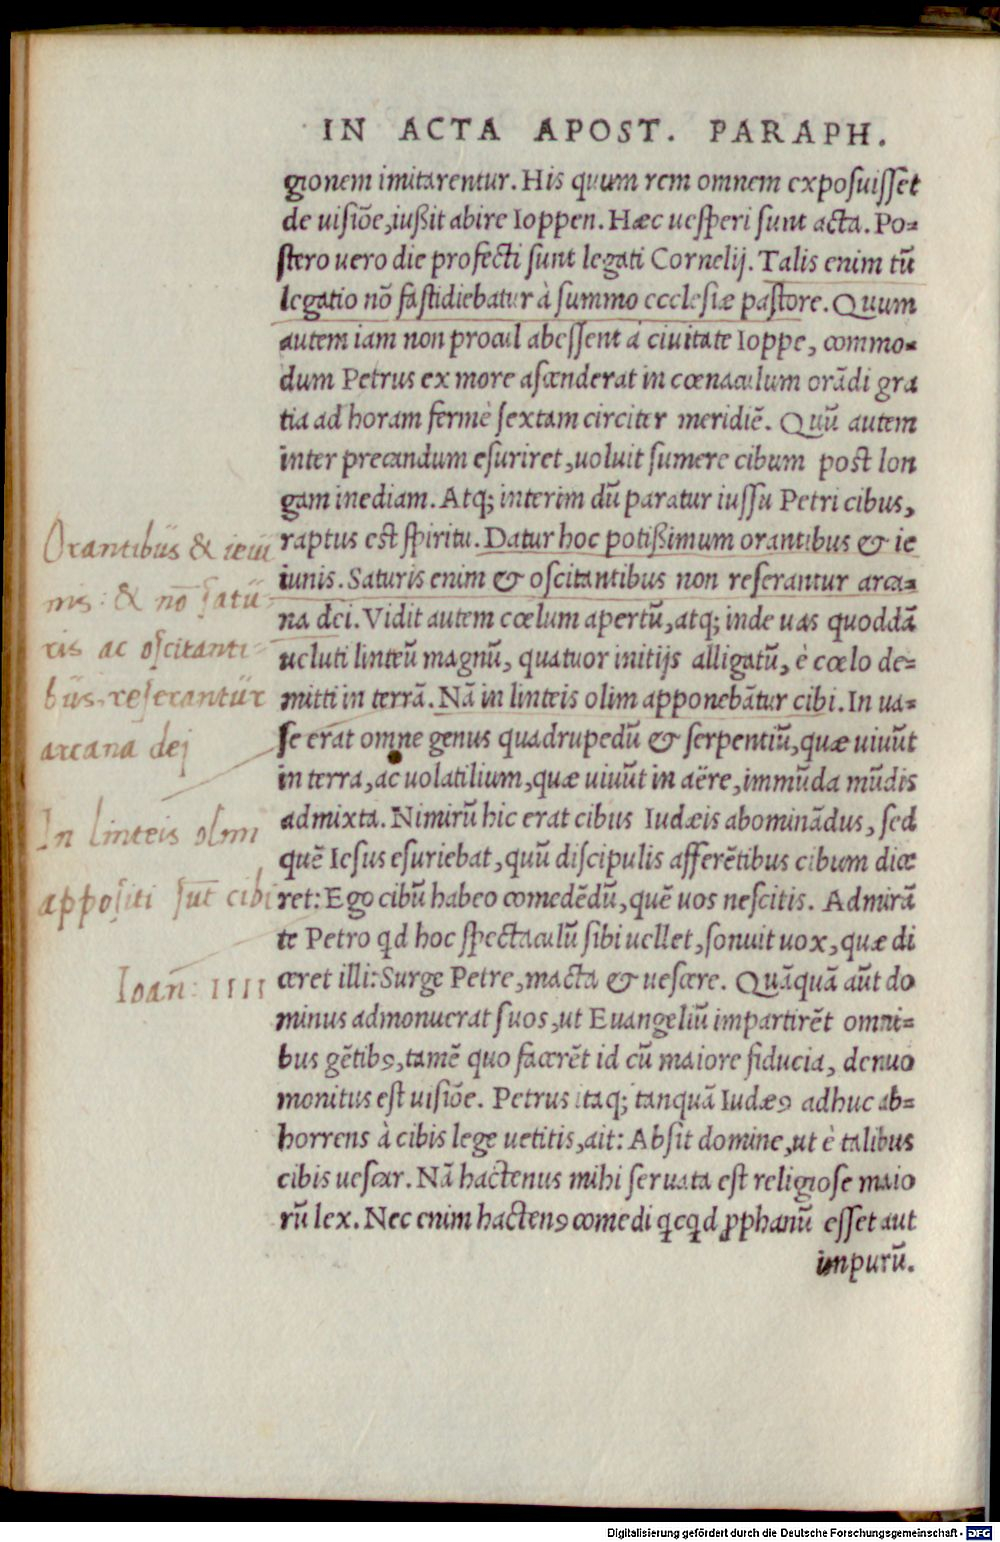 IN ACTA APOST. PARAPH.
gionem imitarentur. His quum rem omnem exposuisset
de uisiõe, iußit abire Ioppen. Hæc uesperi sunt acta. Po-
stero uero die profecti sunt legati Cornelij. Talis enim tũ
legatio nõ fastidiebatur à summo ecclesiæ pastore. Quum
autem iam non procul abessent à ciuitate Ioppe, commo-
dum Petrus ex more ascenderat in cœnaculum orãdi gra
tia ad horam fermè sextam circiter meridiẽ. Quũ autem
inter precandum esuriret, uoluit sumere cibum post lon
gam inediam. Atq; interim dũ paratur iussu Petri cibus,
raptus est spiritu. Datur hoc potißimum orantibus & ie
iunis. Saturis enim & oscitantibus non reserantur arca-
na dei. Vidit autem cœlum apertũ, atq; inde uas quoddã
ueluti linteũ magnũ, quatuor initijs alligatũ, è cœlo de-
mitti in terrã. Nã in linteis olim apponebãtur cibi. In ua-
se erat omne genus quadrupedũ & serpentiũ, quæ uiuũt
in terra, ac uolatilium, quæ uiuũt in aëre, immũda mũdis
admixta. Nimirũ hic erat cibus Iudæis abominãdus, sed
quẽ Iesus esuriebat, quũ discipulis afferẽtibus cibum dice
ret: Ego cibũ habeo comedẽdũ, quẽ uos nescitis. Admirã
te Petro qd hoc spectaculũ sibi uellet, sonuit uox, quæ di
ceret illi: Surge Petre, macta & uescere. Quãquã aũt do
minus admonuerat suos, ut Euangeliũ impartirẽt omni-
bus gẽtibꝰ, tamẽ quo facerẽt id cũ maiore fiducia, denuo
monitus est uisiõe. Petrus itaq; tanquã Iudæꝰ adhuc ab-
horrens à cibis lege uetitis, ait: Absit domine, ut è talibus
cibis uescar. Nã hactenus mihi seruata est religiose maio
rũ lex. Nec enim hactenꝰ comedi qcqd ꝓphanũ esset aut
impurũ.
Orantibus & ieiu
nis: & nõ satu
ris ac oscitanti-
bus reserantur
arcana dej
In linteis olim
appositi sũt cibi
Ioan: IIII
Digitalisierung gefördert durch die Deutsche Forschungsgemeinschaft - DFG